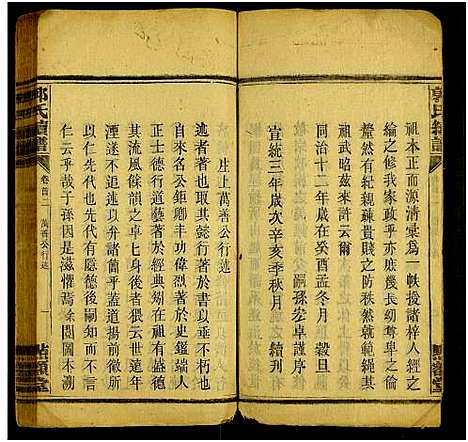 郭氏續譜
祖本正而源清棠為一帙援諸梓人經之
綸之修我家政乎亦庶幾長幼尊卑之倫
釐然有紀親疎貴賤之防秩然就範繩其
祖武昭茲來許云爾
同治十二年歲在癸酉孟冬月 穀旦
嗣孫宏卓謹序
宣統三年歲次辛亥季秋月 續刊
點額堂
郭氏續譜
卷首二 萬善公行述
點額堂
庠上萬善公行述
述者著也取其懿行著於書以垂不朽也
自來名公鉅卿丰功偉績見於史鑑端人
正士德行道藝著於經典矧在祖有盛德
其流風餘韻之卓七後者猥云世遠年
湮遂不追述以示諸裔乎蓋道揚前徽所
以仁先代也先代有隱德後嗣知而不傳
仁云乎哉子孫因是滋懼焉余閱圖本溯